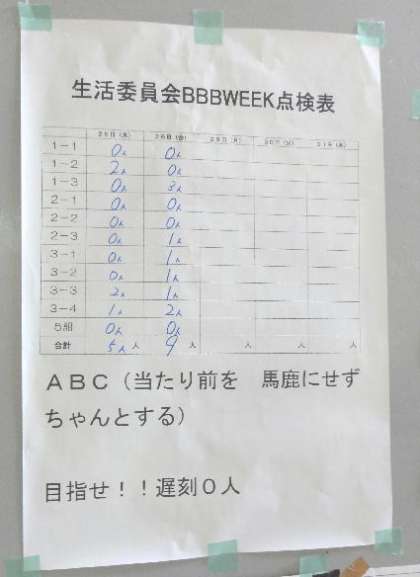 生活委員会BBBWEEK点検表
25日(木) 26日(金) 29日(月) 30日(火) 31日(水)
1-1 0人 0人
1-2 2人 0人
1-3 0人 3人
2-1 0人 0人
2-2 0人 0人
2-3 0人 1人
3-1 0人 1人
3-2 0人 1人
3-3 2人 1人
3-4 1人 2人
5組 0人 0人
合計 5人 人 9 人 人 人 人
ABC(当たり前を 馬鹿にせず
ちゃんとする)
目指せ!!遅刻0人